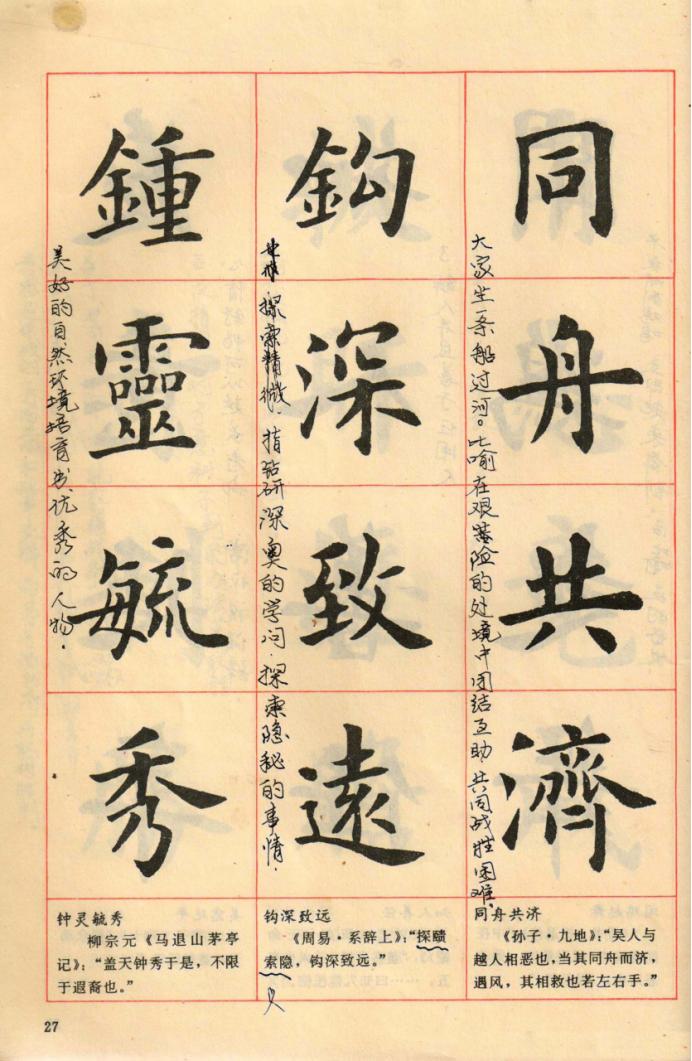 同舟共濟
大家坐一条船过河。比喻在艰险的处境中团结互助,共同战胜困难。
鈎深致遠
探索精微,指钻研深奥的学问.探索隐秘的事情.
鍾靈毓秀
美好的自然环境培育出优秀的人物.
钟灵毓秀
柳宗元《马退山茅亭
记》:“盖天钟秀于是,不限
于遐裔也。”
钩深致远
《周易·系辞上》:“探赜
索隐,钩深致远。”
同舟共济
《孙子·九地》:“吴人与
越人相恶也,当其同舟而济,
遇风,其相救也若左右手。”
27